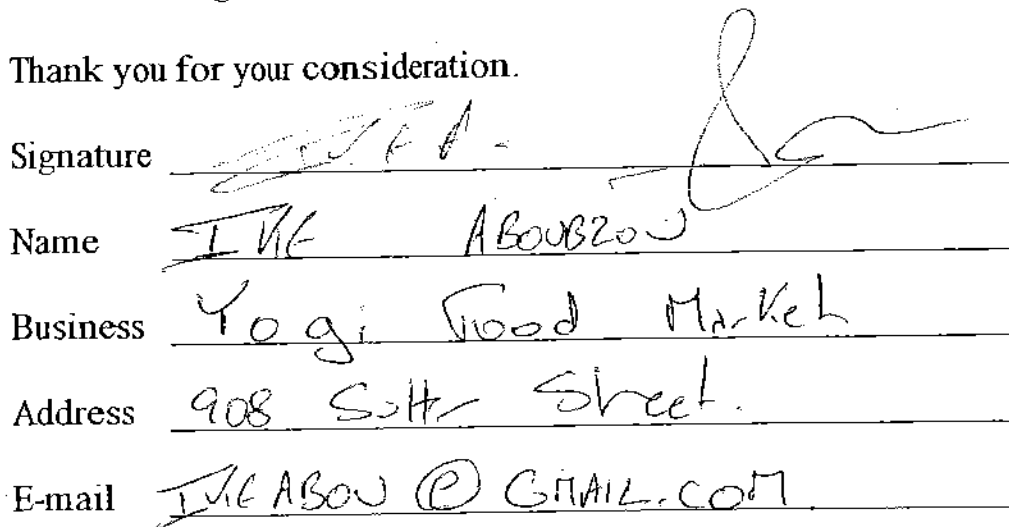 Thank you for your consideration.
Signature IKE A.
Name IKE ABOUBZOU
Business Yogi Food Market
Address 908 Sutter Street.
E-mail IKEABOU@GMAIL.COM